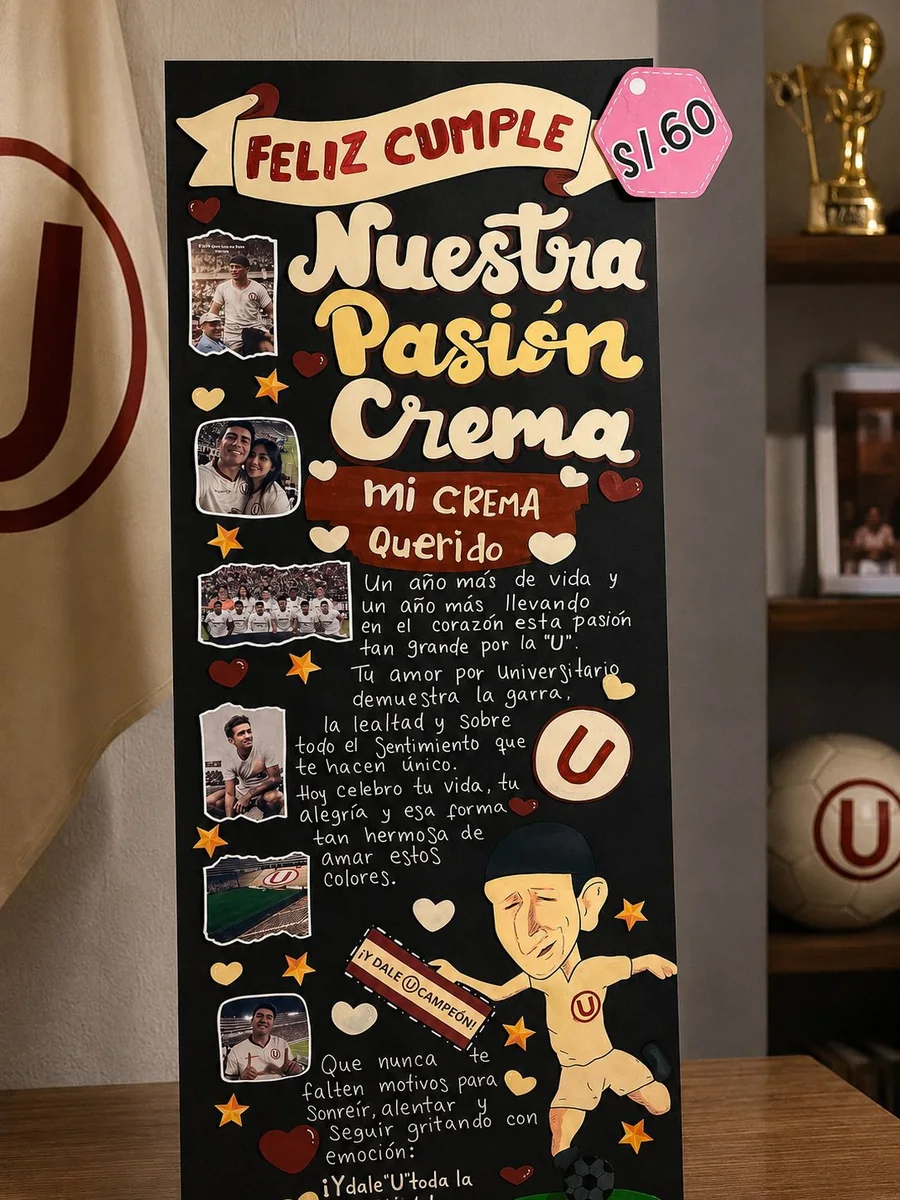 FELIZ CUMPLE
S/.60
Nuestra
Pasión
Crema
mi CREMA
Querido
Un año más de vida y
un año más llevando
en el corazón esta pasión
tan grande por la "U".
Tu amor por Universitario
demuestra la garra,
la lealtad y sobre
todo el Sentimiento que
te hacen único.
Hoy celebro tu vida, tu
alegría y esa forma
tan hermosa de
amar estos
colores.
U
U
U
U
U
¡Y DALE U CAMPEÓN!
Que nunca te
falten motivos para
Sonreír, alentar y
Seguir gritando con
emoción:
¡Y dale "U" toda la